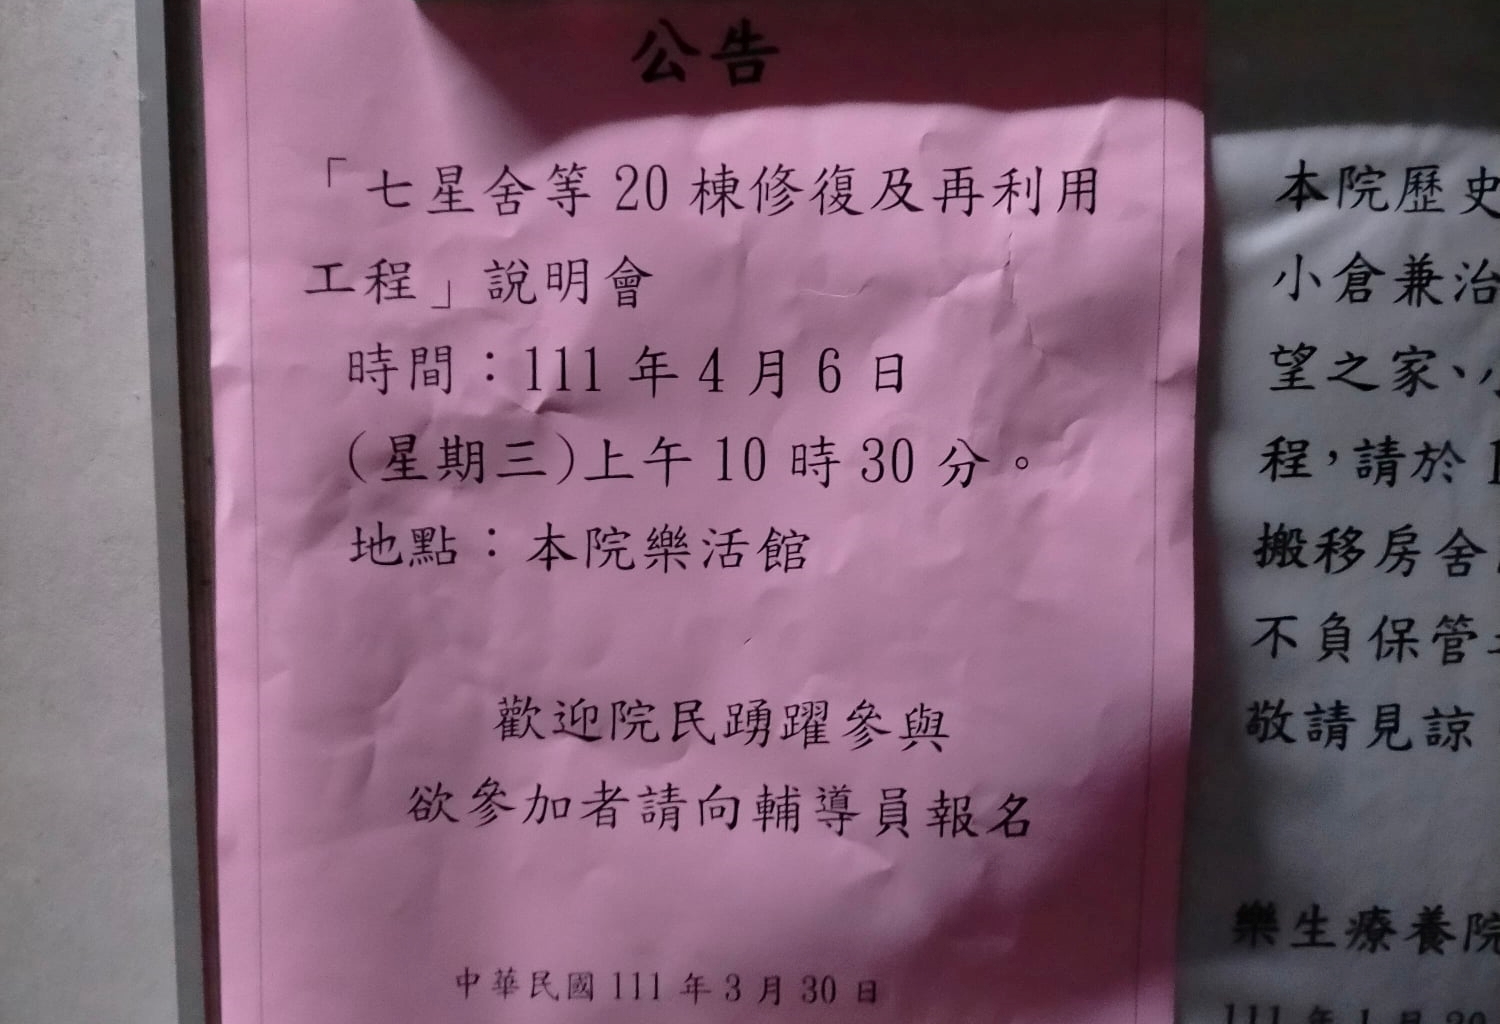 公告
「七星舍等 20 棟修復及再利用
工程」說明會
時間：111 年 4 月 6 日
(星期三)上午 10 時 30 分。
地點：本院樂活館
歡迎院民踴躍參與
欲參加者請向輔導員報名
中華民國 111 年 3 月 30 日
本院歷史
小倉兼治
望之家、小
程，請於 1
搬移房舍
不負保管
敬請見諒
樂生療養院